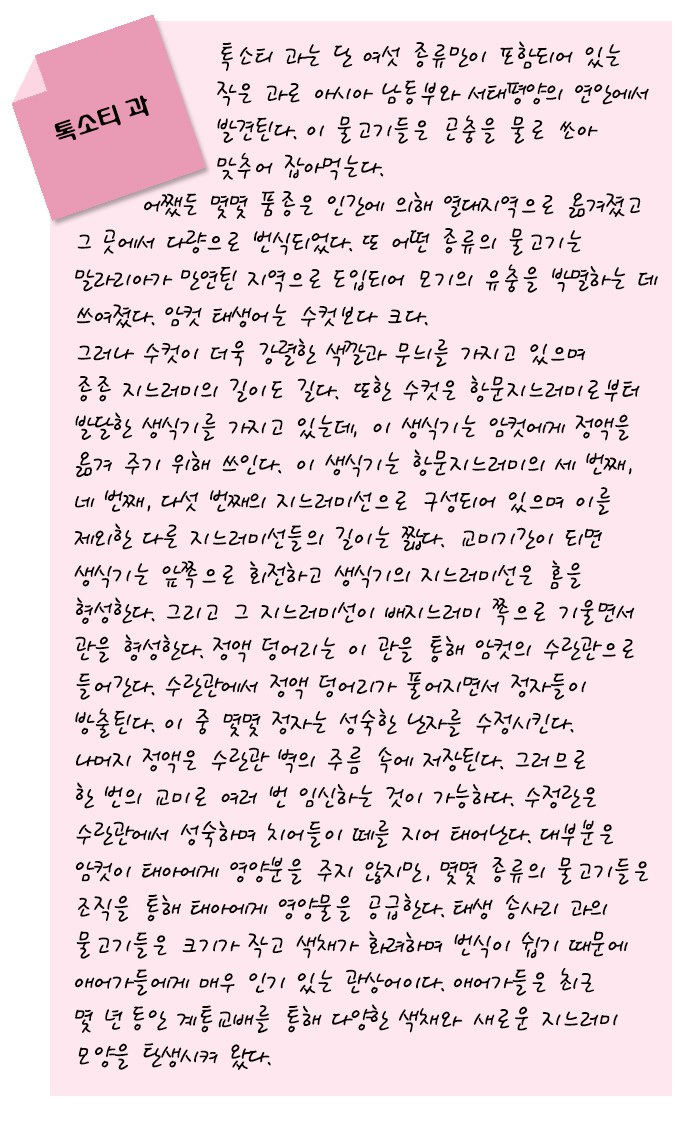 톡소티 과
톡소티 과는 단 여섯 종류만이 포함되어 있는
작은 과로 아시아 남동부와 서태평양의 연안에서
발견된다. 이 물고기들은 곤충을 물로 쏘아
맞추어 잡아먹는다.
어쨌든 몇몇 품종은 인간에 의해 열대지역으로 옮겨졌고
그 곳에서 다량으로 번식되었다. 또 어떤 종류의 물고기는
말라리아가 만연된 지역으로 도입되어 모기의 유충을 박멸하는 데
쓰여졌다. 암컷 태생어는 수컷보다 크다.
그러나 수컷이 더욱 강렬한 색깔과 무늬를 가지고 있으며
종종 지느러미의 길이도 길다. 또한 수컷은 항문지느러미로부터
발달한 생식기를 가지고 있는데, 이 생식기는 암컷에게 정액을
옮겨 주기 위해 쓰인다. 이 생식기는 항문지느러미의 세 번째,
네 번째, 다섯 번째의 지느러미선으로 구성되어 있으며 이를
제외한 다른 지느러미선들의 길이는 짧다. 교미기간이 되면
생식기는 앞쪽으로 회전하고 생식기의 지느러미선은 홈을
형성한다. 그리고 그 지느러미선이 배지느러미 쪽으로 기울면서
관을 형성한다. 정액 덩어리는 이 관을 통해 암컷의 수란관으로
들어간다. 수란관에서 정액 덩어리가 풀어지면서 정자들이
방출된다. 이 중 몇몇 정자는 성숙한 난자를 수정시킨다.
나머지 정액은 수란관 벽의 주름 속에 저장된다. 그러므로
한 번의 교미로 여러 번 임신하는 것이 가능하다. 수정란은
수란관에서 성숙하며 치어들이 떼를 지어 태어난다. 대부분은
암컷이 태아에게 영양분을 주지 않지만, 몇몇 종류의 물고기들은
조직을 통해 태아에게 영양물을 공급한다. 태생 송사리 과의
물고기들은 크기가 작고 색채가 화려하며 번식이 쉽기 때문에
애어가들에게 매우 인기 있는 관상어이다. 애어가들은 최근
몇 년 동안 계통교배를 통해 다양한 색채와 새로운 지느러미
모양을 탄생시켜 왔다.